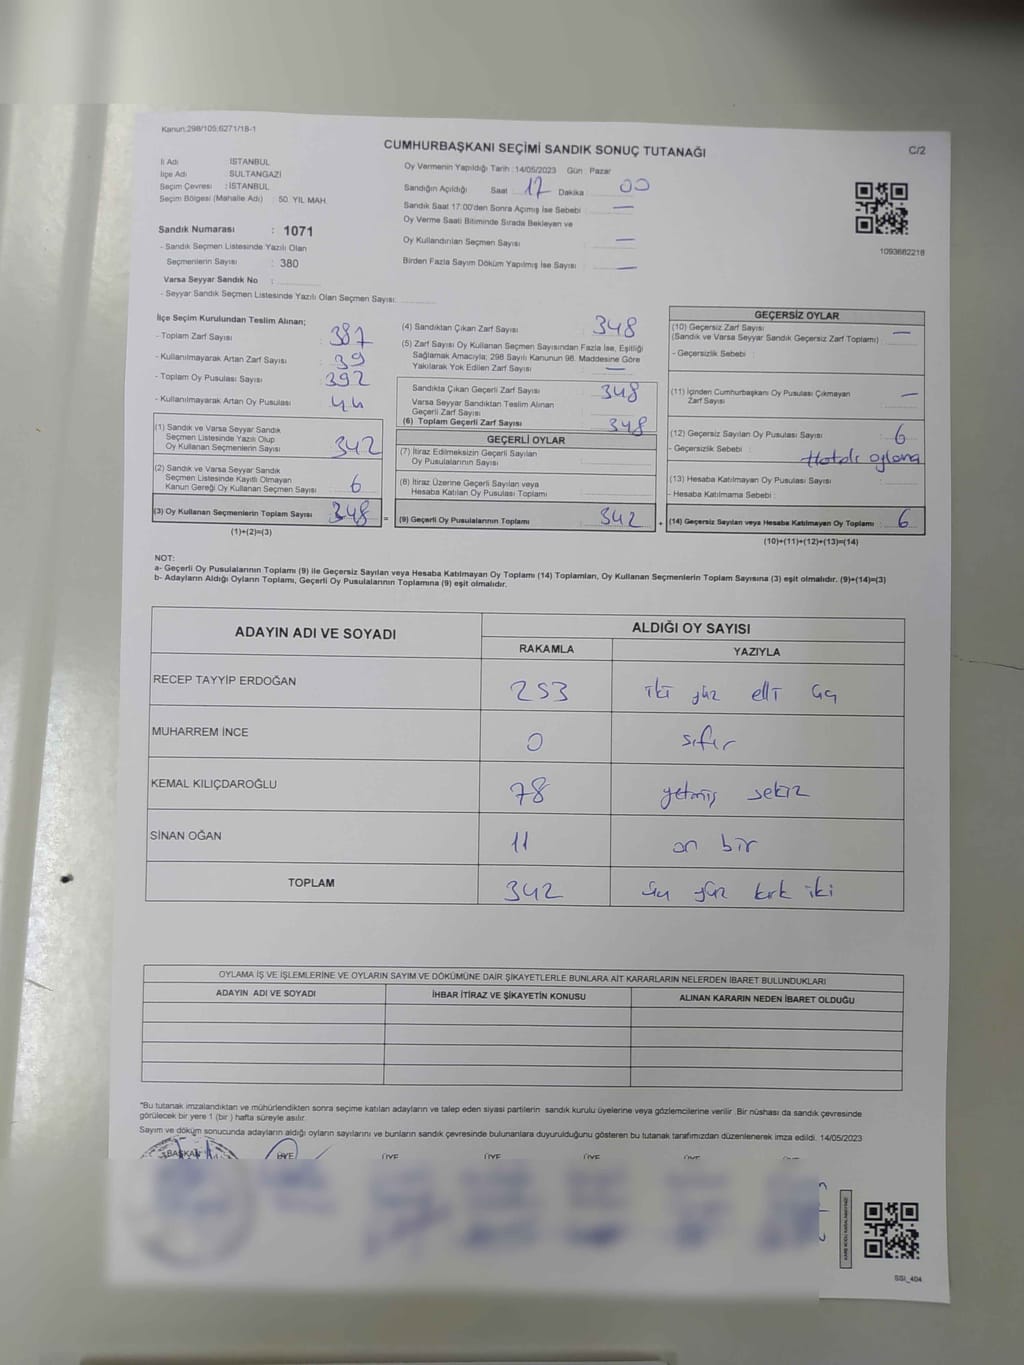 Kanun:298/105;6271/18-1
CUMHURBAŞKANI SEÇİMİ SANDIK SONUÇ TUTANAĞI
C/2
İl Adı : İSTANBUL
İlçe Adı : SULTANGAZİ
Seçim Çevresi : İSTANBUL
Seçim Bölgesi (Mahalle Adı) : 50. YIL MAH.
Sandık Numarası : 1071
- Sandık Seçmen Listesinde Yazılı Olan
Seçmenlerin Sayısı : 380
Varsa Seyyar Sandık No :
- Seyyar Sandık Seçmen Listesinde Yazılı Olan Seçmen Sayısı:
Oy Vermenin Yapıldığı Tarih :14/05/2023 Gün : Pazar
Sandığın Açıldığı Saat : 17 Dakika : 00
Sandık Saat 17:00'den Sonra Açımış İse Sebebi : —
Oy Verme Saati Bitiminde Sırada Bekleyen ve
Oy Kullandırılan Seçmen Sayısı : —
Birden Fazla Sayım Döküm Yapılmış İse Sayısı : —
1093662218
İlçe Seçim Kurulundan Teslim Alınan;
- Toplam Zarf Sayısı : 387
- Kullanılmayarak Artan Zarf Sayısı : 39
- Toplam Oy Pusulası Sayısı : 392
- Kullanılmayarak Artan Oy Pusulası : 44
(1) Sandık ve Varsa Seyyar Sandık
Seçmen Listesinde Yazılı Olup
Oy Kullanan Seçmenlerin Sayısı : 342
(2) Sandık ve Varsa Seyyar Sandık
Seçmen Listesinde Kayıtlı Olmayan
Kanun Gereği Oy Kullanan Seçmen Sayısı : 6
(3) Oy Kullanan Seçmenlerin Toplam Sayısı : 348 =
(1)+(2)=(3)
(4) Sandıktan Çıkan Zarf Sayısı : 348
(5) Zarf Sayısı Oy Kullanan Seçmen Sayısından Fazla İse, Eşitliği
Sağlamak Amacıyla; 298 Sayılı Kanunun 98. Maddesine Göre
Yakılarak Yok Edilen Zarf Sayısı : —
Sandıkta Çıkan Geçerli Zarf Sayısı : 348
Varsa Seyyar Sandıktan Teslim Alınan
Geçerli Zarf Sayısı :
(6) Toplam Geçerli Zarf Sayısı : 348
GEÇERLİ OYLAR
(7) İtiraz Edilmeksizin Geçerli Sayılan
Oy Pusulalarının Sayısı :
(8) İtiraz Üzerine Geçerli Sayılan veya
Hesaba Katılan Oy Pusulası Toplamı :
(9) Geçerli Oy Pusulalarının Toplamı : 342 +
GEÇERSİZ OYLAR
(10) Geçersiz Zarf Sayısı
(Sandık ve Varsa Seyyar Sandık Geçersiz Zarf Toplamı) : —
- Geçersizlik Sebebi :
(11) İçinden Cumhurbaşkanı Oy Pusulası Çıkmayan
Zarf Sayısı : —
(12) Geçersiz Sayılan Oy Pusulası Sayısı : 6
- Geçersizlik Sebebi :
(13) Hesaba Katılmayan Oy Pusulası Sayısı :
- Hesaba Katılmama Sebebi :
(14) Geçersiz Sayılan veya Hesaba Katılmayan Oy Toplamı : 6
(10)+(11)+(12)+(13)=(14)
NOT:
a- Geçerli Oy Pusulalarının Toplamı (9) ile Geçersiz Sayılan veya Hesaba Katılmayan Oy Toplamı (14) Toplamları, Oy Kullanan Seçmenlerin Toplam Sayısına (3) eşit olmalıdır. (9)+(14)=(3)
b- Adayların Aldığı Oyların Toplamı, Geçerli Oy Pusulalarının Toplamına (9) eşit olmalıdır.
ADAYIN ADI VE SOYADI
ALDIĞI OY SAYISI
RAKAMLA YAZIYLA
RECEP TAYYİP ERDOĞAN 253 iki yüz elli üç
MUHARREM İNCE 0 sıfır
KEMAL KILIÇDAROĞLU 78 yetmiş sekiz
SİNAN OĞAN 11 on bir
TOPLAM 342 üç yüz kırk iki
OYLAMA İŞ VE İŞLEMLERİNE VE OYLARIN SAYIM VE DÖKÜMÜNE DAİR ŞİKAYETLERLE BUNLARA AİT KARARLARIN NELERDEN İBARET BULUNDUKLARI
ADAYIN ADI VE SOYADI İHBAR İTİRAZ VE ŞİKAYETİN KONUSU ALINAN KARARIN NEDEN İBARET OLDUĞU
"Bu tutanak imzalandıktan ve mühürlendikten sonra seçime katılan adayların ve talep eden siyasi partilerin sandık kurulu üyelerine veya gözlemcilerine verilir .Bir nüshası da sandık çevresinde
görülecek bir yere 1 (bir ) hafta süreyle asılır.
Sayım ve döküm sonucunda adayların aldığı oyların sayılarını ve bunların sandık çevresinde bulunanlara duyurulduğunu gösteren bu tutanak tarafımızdan düzenlenerek imza edildi. 14/05/2023
BAŞKAN ÜYE ÜYE ÜYE ÜYE ÜYE ÜYE
SSI_404